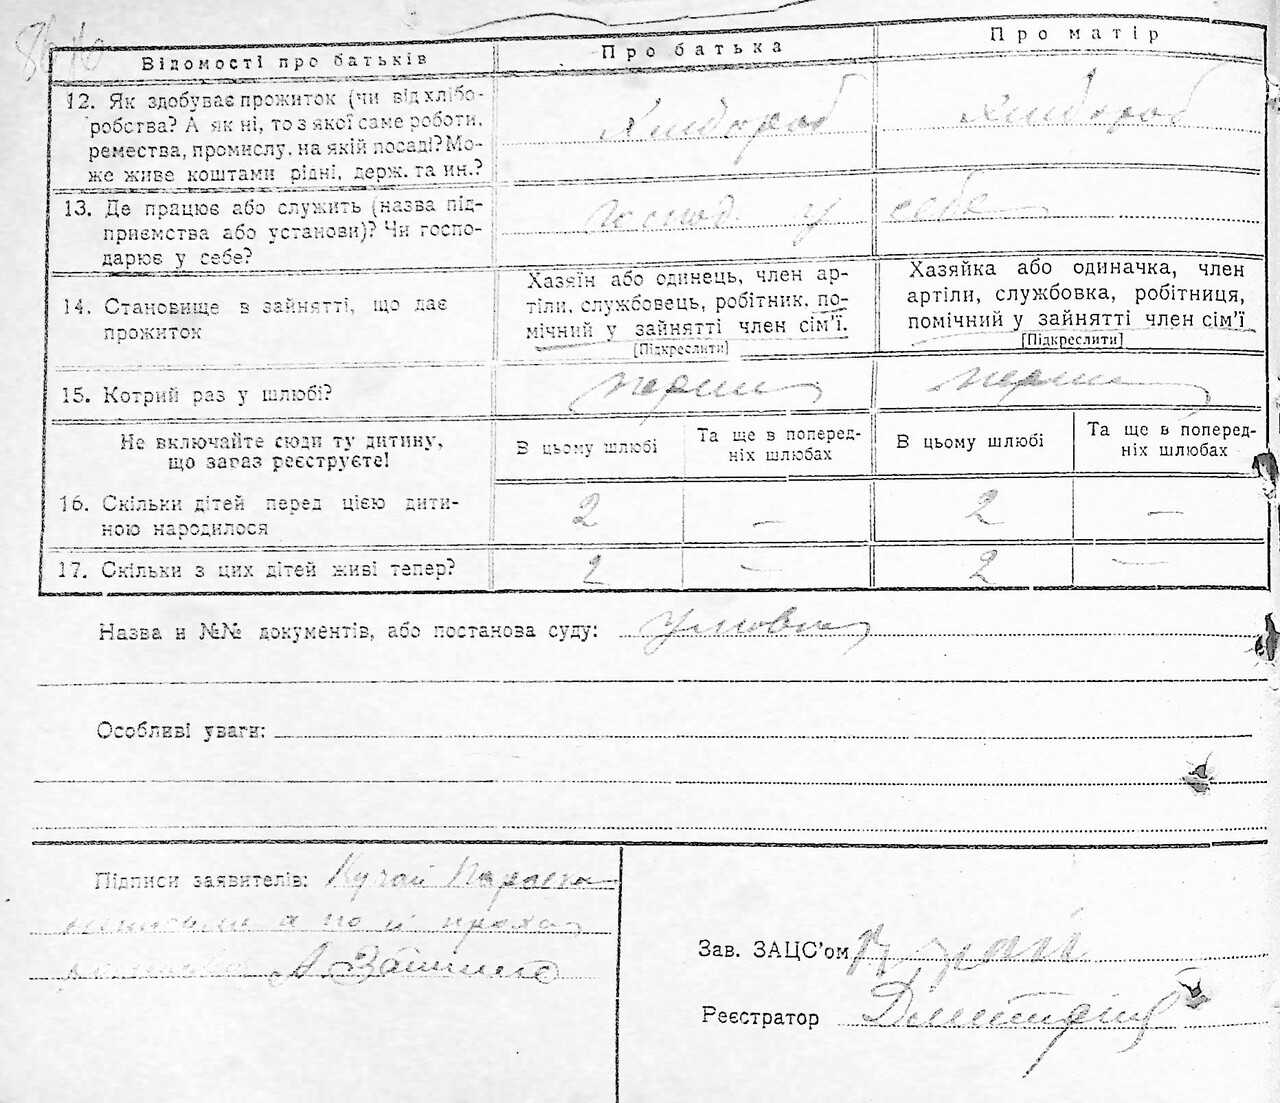 Відомості про батьків
Про батька
Про матір
12. Як здобуває прожиток (чи від хлібо-
робства? А як ні, то з якої саме роботи,
ремества, промислу, на якій посаді? Мо-
же живе коштами рідні, держ. та ин.?
Хлібороб
Хлібороб
13. Де працює або служить (назва під-
приємства або установи)? Чи госпо-
дарює у себе?
господ. у себе
14. Становище в зайнятті, що дає
прожиток
Хазяїн або одинець, член ар-
тіли, службовець, робітник, по-
мічний у зайнятті член сім'ї.
[Підкреслити]
Хазяйка або одиначка, член
артіли, службовка, робітниця,
помічний у зайнятті член сім'ї
[Підкреслити]
15. Котрий раз у шлюбі?
перш
перш
Не включайте сюди ту дитину,
що зараз реєструєте!
В цьому шлюбі
Та ще в поперед-
ніх шлюбах
В цьому шлюбі
Та ще в поперед-
ніх шлюбах
16. Скільки дітей перед цією дити-
ною народилося
2 — 2 —
17. Скільки з цих дітей живі тепер?
2 — 2 —
Назва и №№ документів, або постанова суду:
Особливі уваги:
Підписи заявителів: Кучай Параска
а по її проха
А
Зав. ЗАЦС'ом
Реєстратор